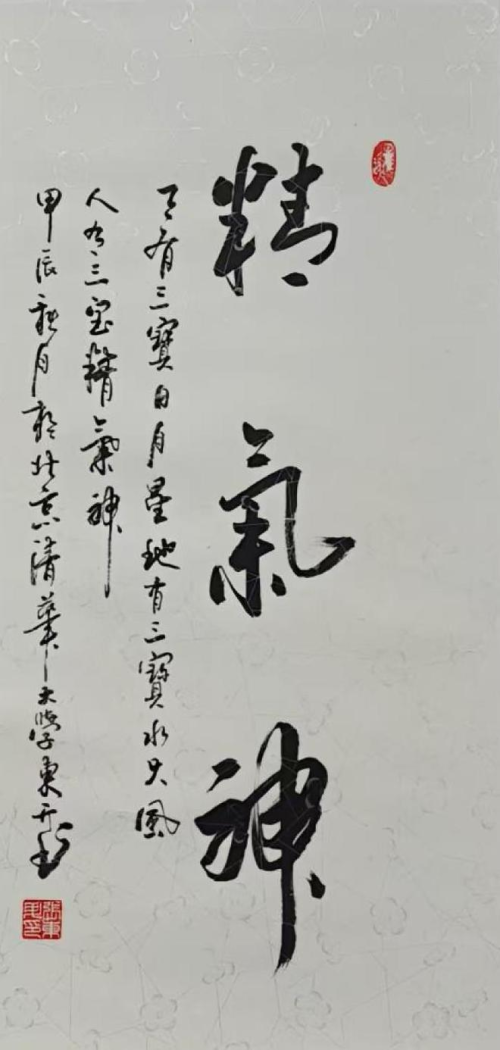 精氣神
天有三寶日月星地有三寶水火風
人有三宝精氣神
甲辰月於北京清華大學東书
張東印